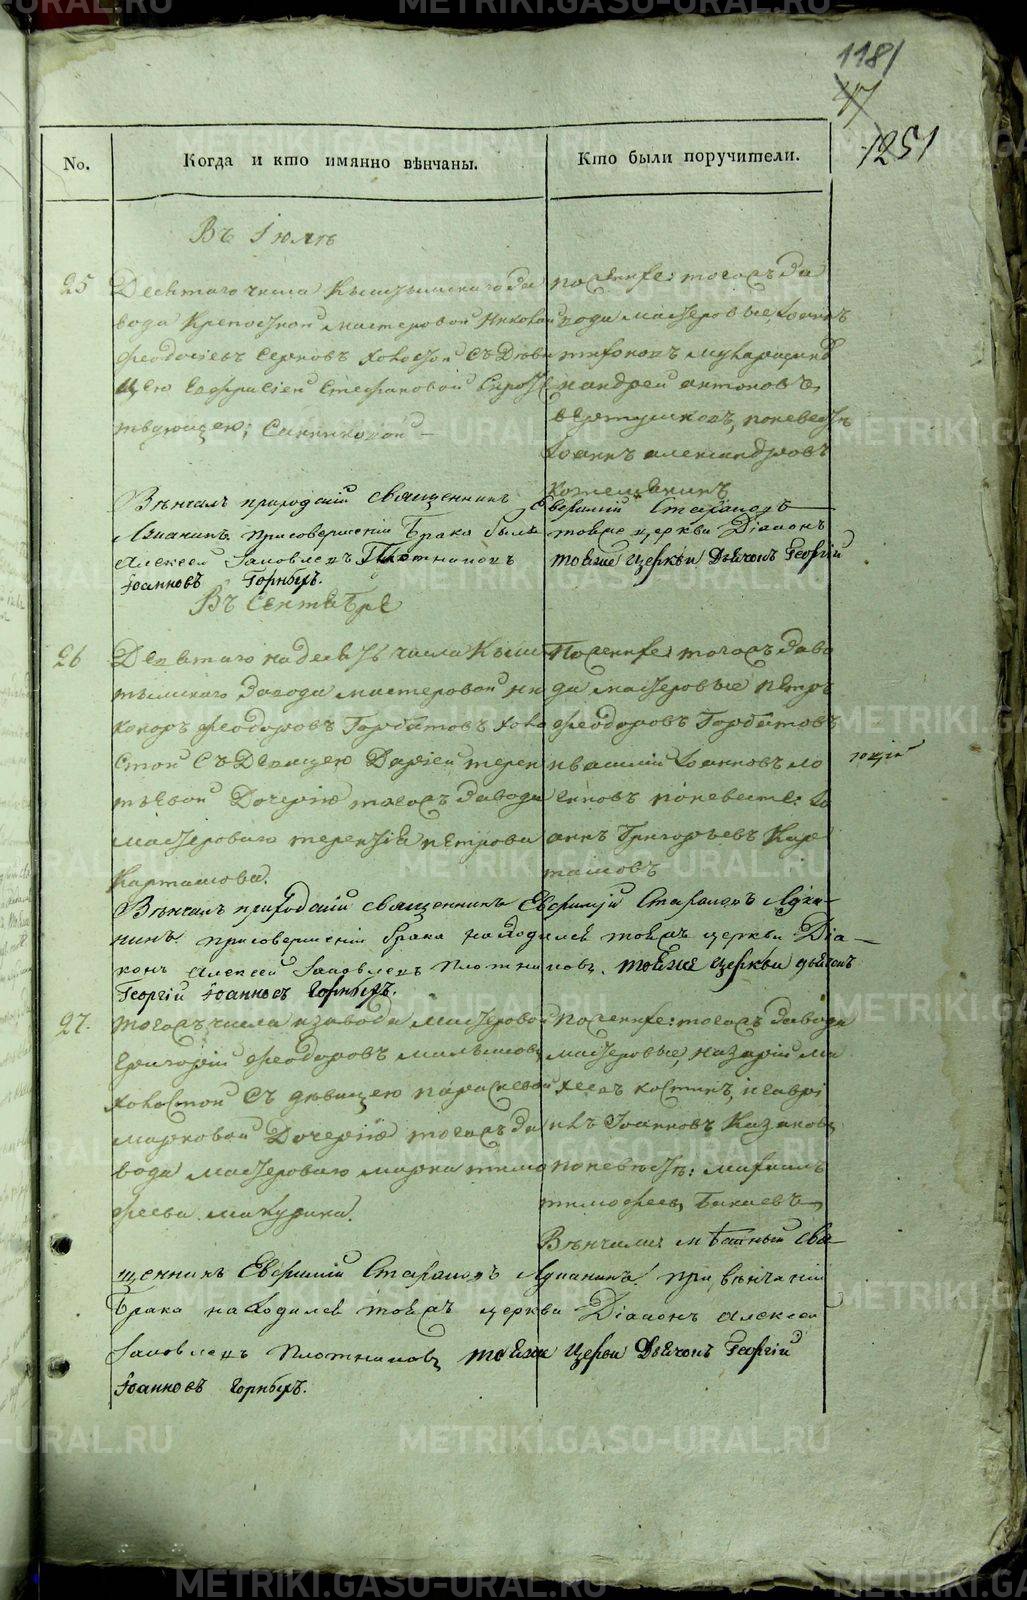 1181
47
1251
No.
Когда и кто имянно вѣнчаны.
Кто были поручители.
Въ Iюлѣ
25
Десятаго числа Кыштымскаго за
вода Крепостной мастеровой Николай
Феодосіевъ Серковъ холостой съ Девы
цею Евфрасіей Стефановой Сирот
Синниковой
по женихѣ: тогожъ за
вода мастеровые, Iоаннъ
Тифоновъ
и андрей антоновъ
поневестѣ
Iоаннъ александровъ
Вѣнчалъ приходскій священникъ Евфимій Стахановъ
Адіанинъ. присовершеніи Брака были тойже церкви Діаконъ
Алексей Iаковлевъ Плотниковъ тойже церкви Дьячокъ Георгій
Iоанновъ Горныхъ.
Въ Сентябре
26
Девятаго надесять числа Кыш
тымскаго завода мастеровой ни
каноръ Феодоровъ Горбатовъ холо
стой Съ Девицею Даріей терен
тьевой Дочерію тогожъ завода
мастероваго терентія петрова
Карташова.
По женихе: тогожъ заво
да мастеровые петръ
Феодоровъ Горбатовъ
и василій Iоанновъ ло
поневесте: Iо
аннъ Григорьевъ Кар
ташовъ
Вѣнчалъ приходскій священникъ Евфимій Стахановъ Адіа-
нинъ. присовершеніи брака находился тояжъ церкви Діа-
конъ Алексей Iаковлевъ Плотниковъ. тойже церкви дьячокъ
Георгій Iоанновъ Горныхъ.
27.
тогожъ числа и завода мастеровой
Григорій Феодоровъ малышовъ
холостой Съ девицею параскевой
марковой Дочерію тогожъ за
вода мастероваго марка тимо
феева макурина.
По женихе: тогожъ завода
мастеровые, назарій ми
хеевъ костинъ, и гаврі
илъ Iоанновъ Казаковъ
поневестѣ: михаилъ
тимофеевъ Бакаевъ
Вѣнчали: мѣстный свя-
щенникъ Евфимій Стахановъ Адіанинъ. при вѣнчаніи
Брака находился тояжъ церкви Діаконъ Алексей
Iаковлевъ Плотниковъ тойже церкви Дьячокъ Георгій
Iоанновъ Горныхъ.
METRIKI.GASO-URAL.RU